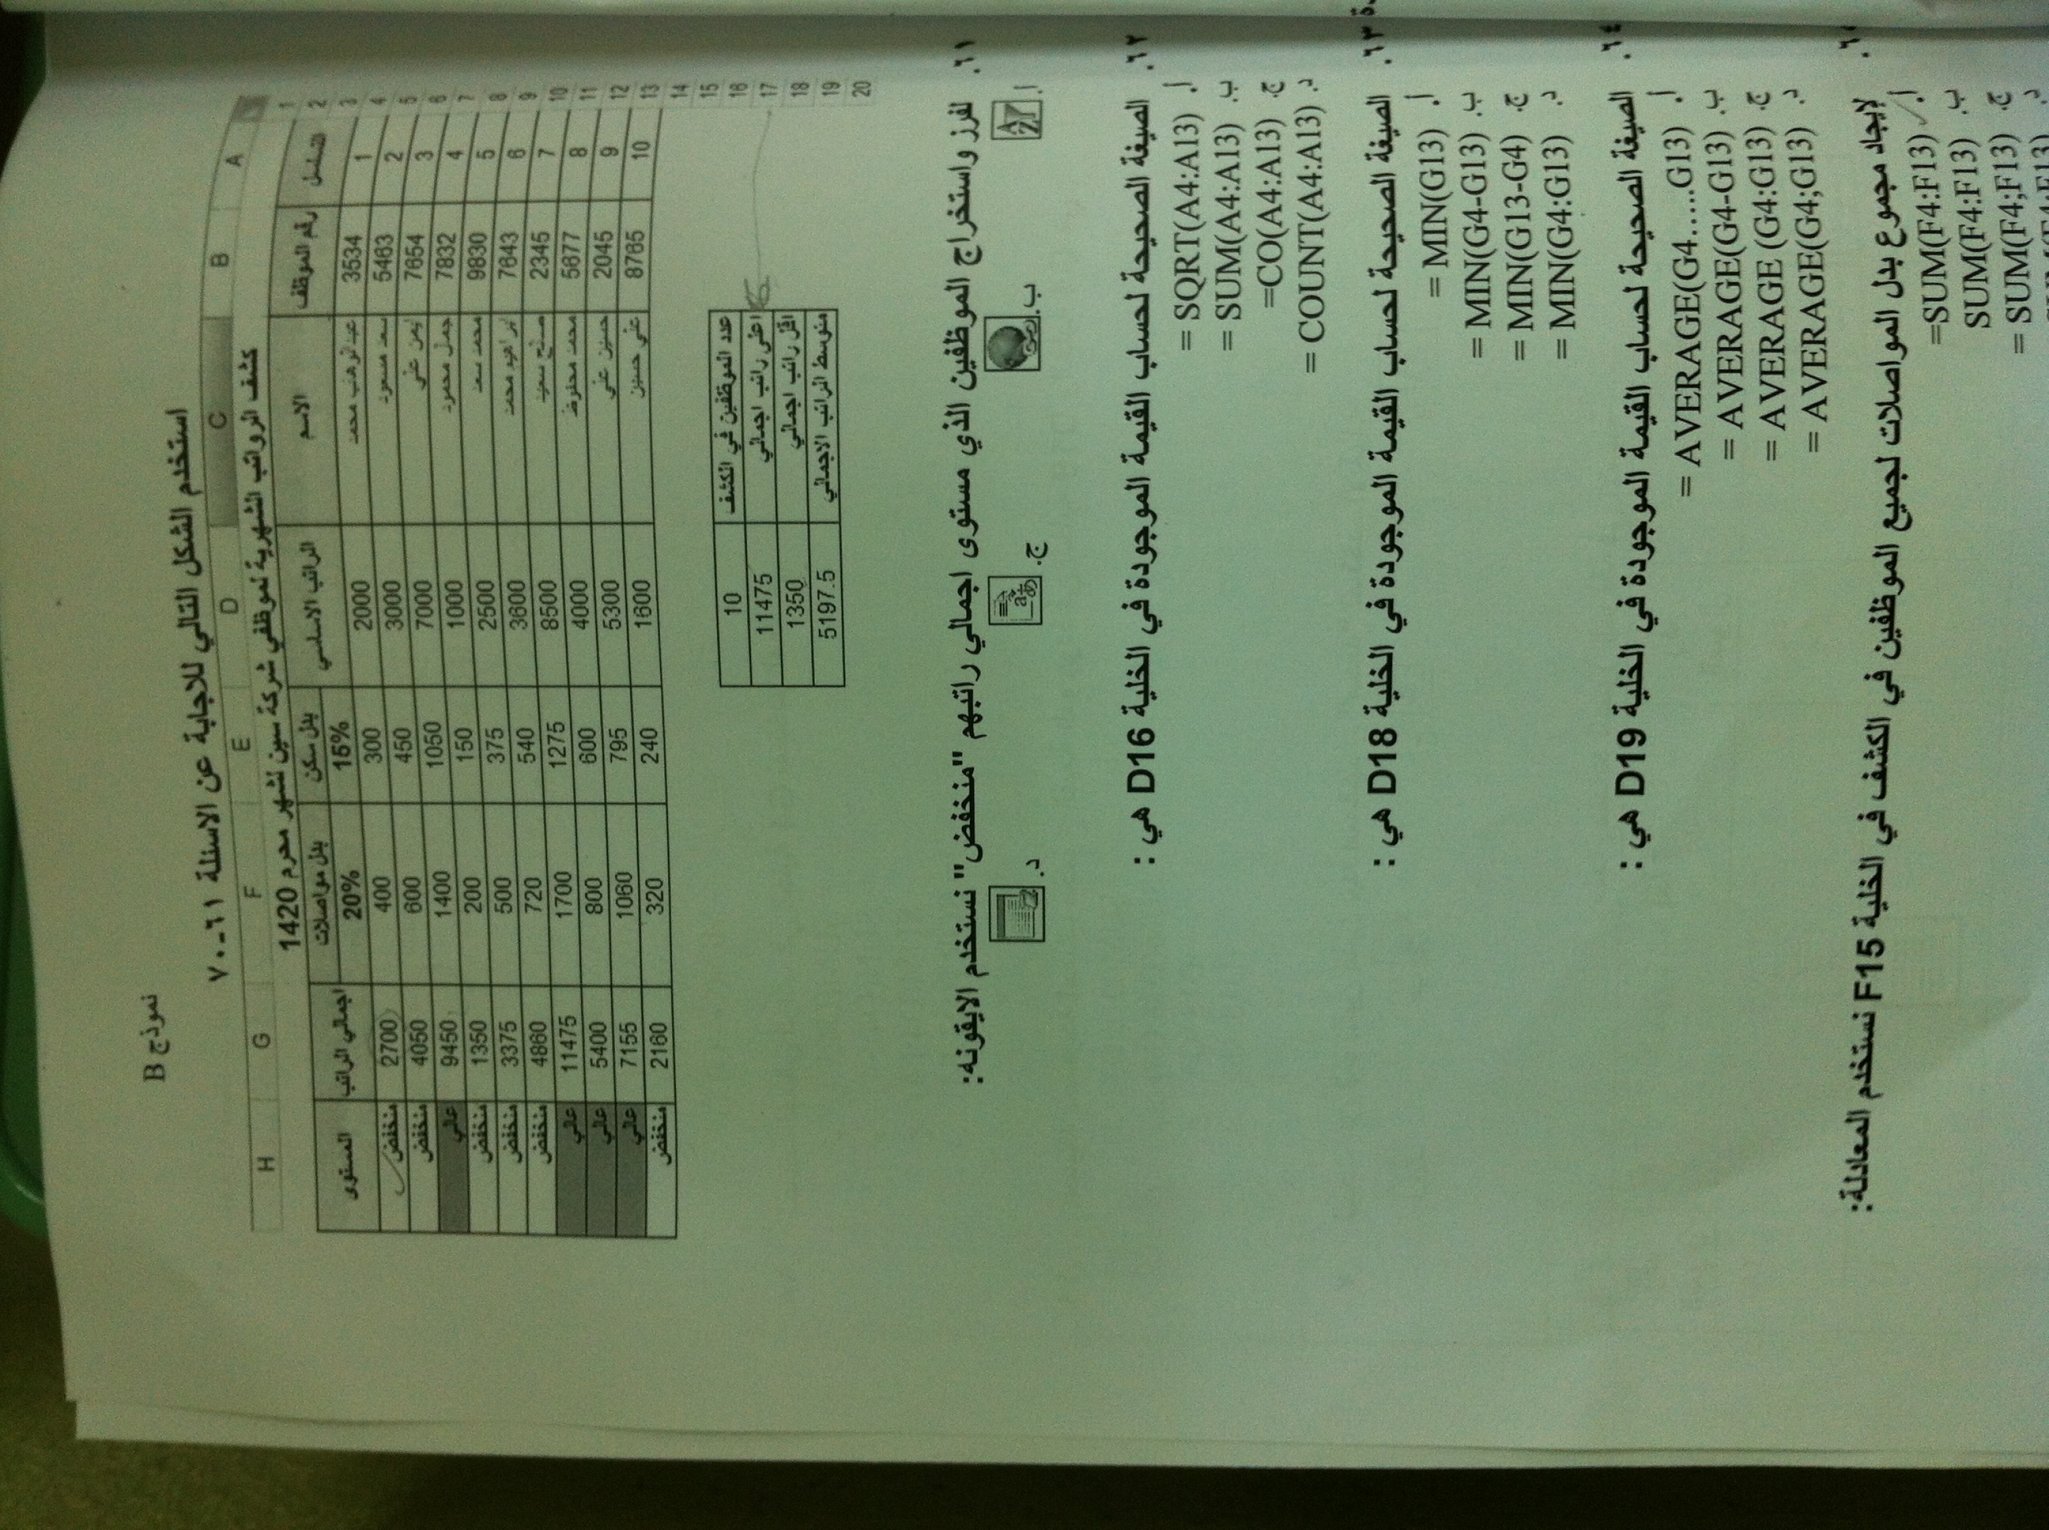 نموذج B
استخدم الشكل التالي للاجابة عن الاسئلة ٦١-٧٠
A B C D E F G H
1 كشف الرواتب الشهرية لموظفي شركة سين لشهر محرم 1420
2 التسلسل رقم الموظف الاسم الراتب الاساسي بدل سكن بدل مواصلات اجمالي الراتب المستوى
3 15% 20%
4 1 3534 عبدالوهاب محمد 2000 300 400 2700 منخفض
5 2 5463 سعد مسعود 3000 450 600 4050 منخفض
6 3 7654 ايمن علي 7000 1050 1400 9450 عالي
7 4 7832 جمال محمود 1000 150 200 1350 منخفض
8 5 9830 محمد سعد 2500 375 500 3375 منخفض
9 6 7643 ابراهيم محمد 3600 540 720 4860 منخفض
10 7 2345 صالح سعيد 8500 1275 1700 11475 عالي
11 8 5677 محمد محفوظ 4000 600 800 5400 عالي
12 9 2045 حسين علي 5300 795 1060 7155 عالي
13 10 8765 علي حسين 1600 240 320 2160 منخفض
14
15
16 عدد الموظفين في الكشف 10
17 اعلى راتب اجمالي 11475
18 اقل راتب اجمالي 1350
19 متوسط الراتب الاجمالي 5197.5
20
٦١. لفرز واستخراج الموظفين الذي مستوى اجمالي راتبهم "منخفض" نستخدم الايقونه:
أ. ب. ج. د.
٦٢. الصيغة الصحيحة لحساب القيمة الموجودة في الخلية D16 هي :
أ. = SQRT(A4:A13)
ب. = SUM(A4:A13)
ج. =CO(A4:A13)
د. = COUNT(A4:A13)
٦٣. الصيغة الصحيحة لحساب القيمة الموجودة في الخلية D18 هي :
أ. = MIN(G13)
ب. = MIN(G4-G13)
ج. = MIN(G13-G4)
د. = MIN(G4:G13)
٦٤. الصيغة الصحيحة لحساب القيمة الموجودة في الخلية D19 هي :
أ. = AVERAGE(G4.....G13)
ب. = AVERAGE(G4-G13)
ج. = AVERAGE (G4:G13)
د. = AVERAGE(G4;G13)
لايجاد مجموع بدل المواصلات لجميع الموظفين في الكشف في الخلية F15 نستخدم المعادلة:
أ. =SUM(F4:F13)
ب. SUM(F4:F13)
ج. = SUM(F4;F13)
د.